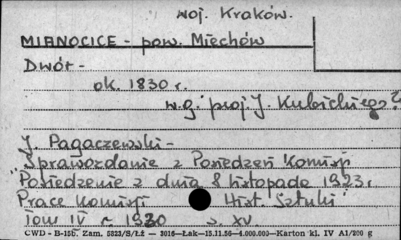 woj. Kraków.
MIANOCICE - pow. Miechów
Dwór -
ok. 1830 r.
w.g. proj. J. Kubickiego?
J. Pagaczewski -
"Sprawozdanie z Posiedzeń Komisji
"Posiedzenie z dnia 8 listopada 1923 r.
Prace Komisji Hist. Sztuki"
tom IV r. 1930 s. XV.
CWD - B-15b. Zam. 5823/S/Łż — 3016—Łak—15.11.56—4.000.000—Karton kl. IV A1/200 g